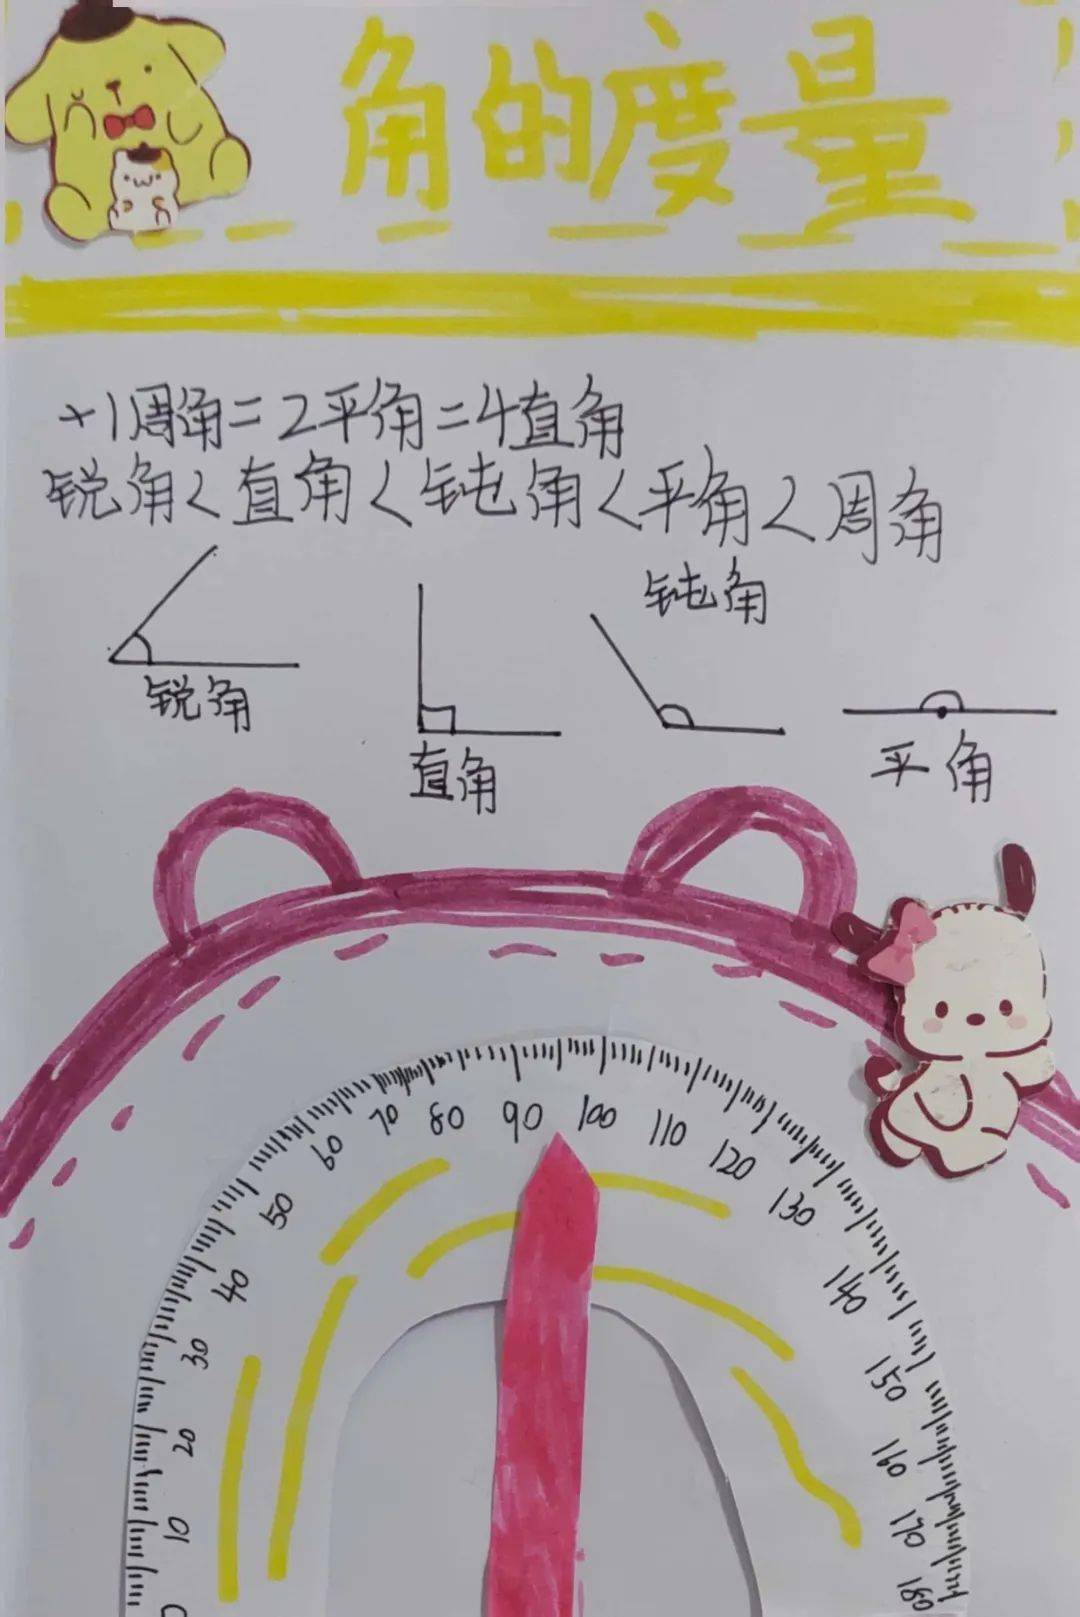 角的度量
+1周角=2平角=4直角
锐角<直角<钝角<平角<周角
钝角
锐角
直角
平角
0
10
20
30
40
50
60
70
80
90
100
110
120
130
140
150
160
170
180